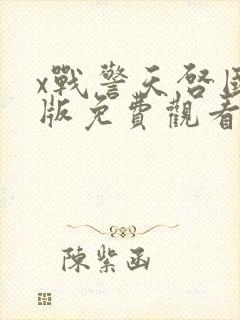 x戰警天啓國
版免費觀看
陳紫函